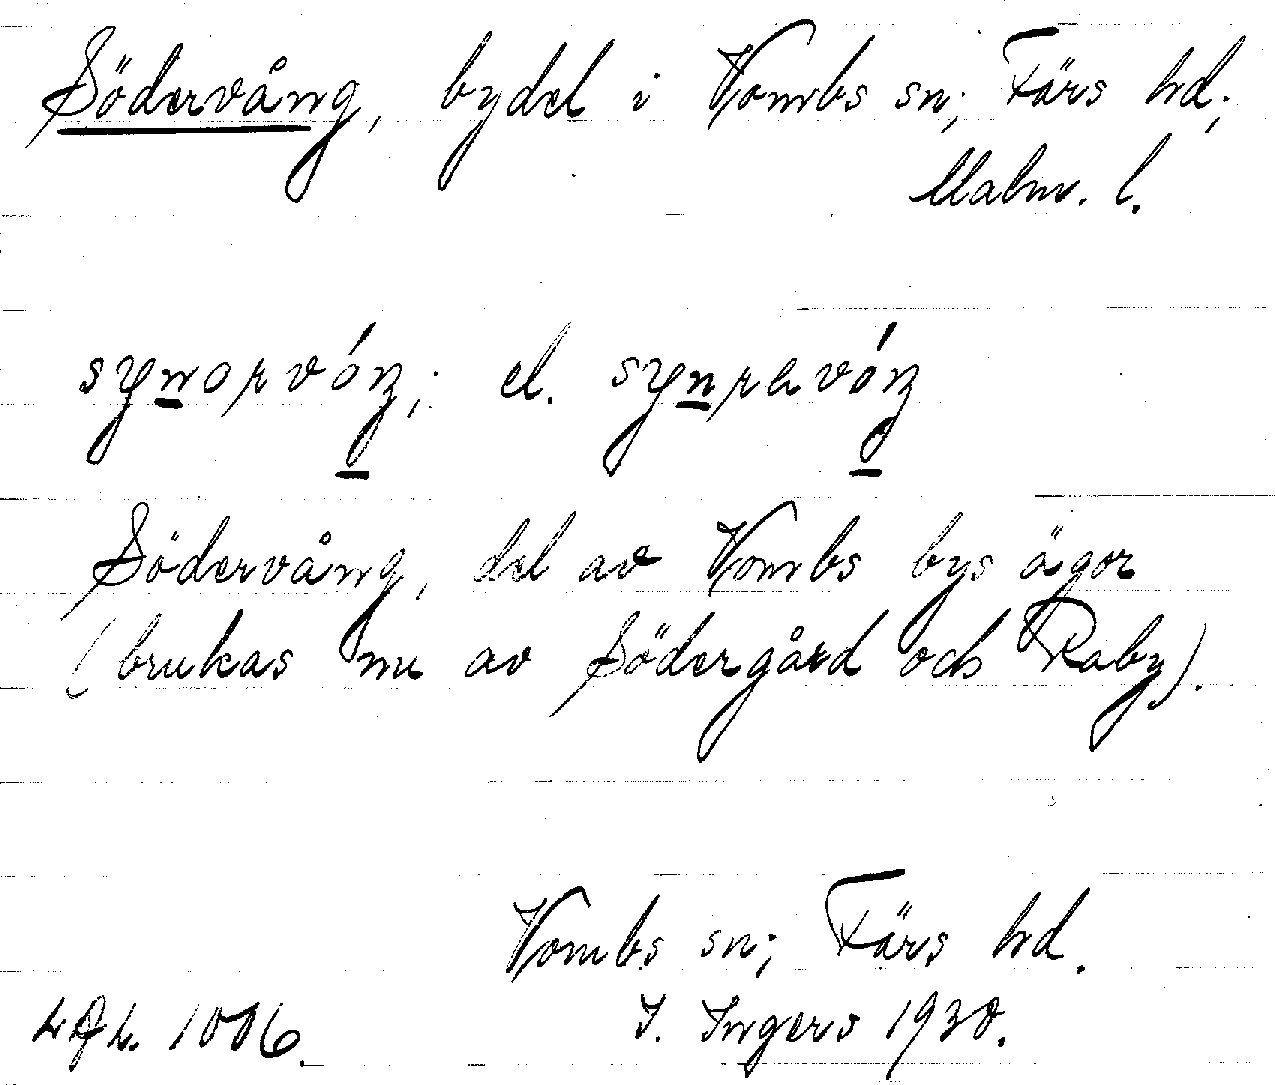 Södervång, bydel i Vombs sn; Färs hd;
Malm. l.
synorvóŋ; el. synravóŋ
Södervång, del av Vombs bys ägor
(brukas nu av Södergård och Raby).
Vombs sn; Färs hd.
I. Ingers 1930.
1006.